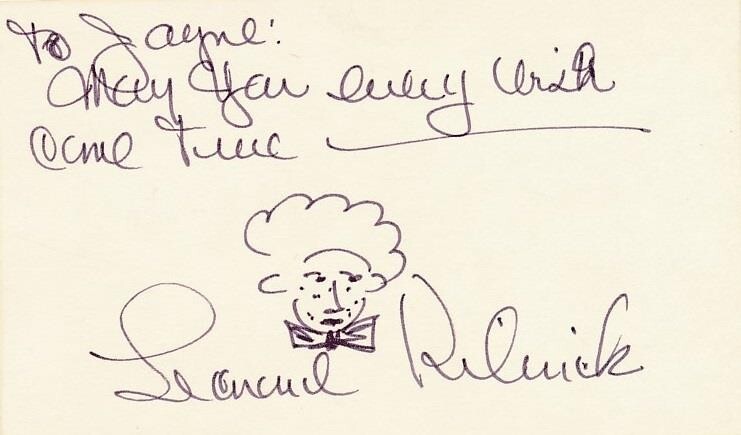 To Jayne:
May Your every Wish
Come True
Leonard